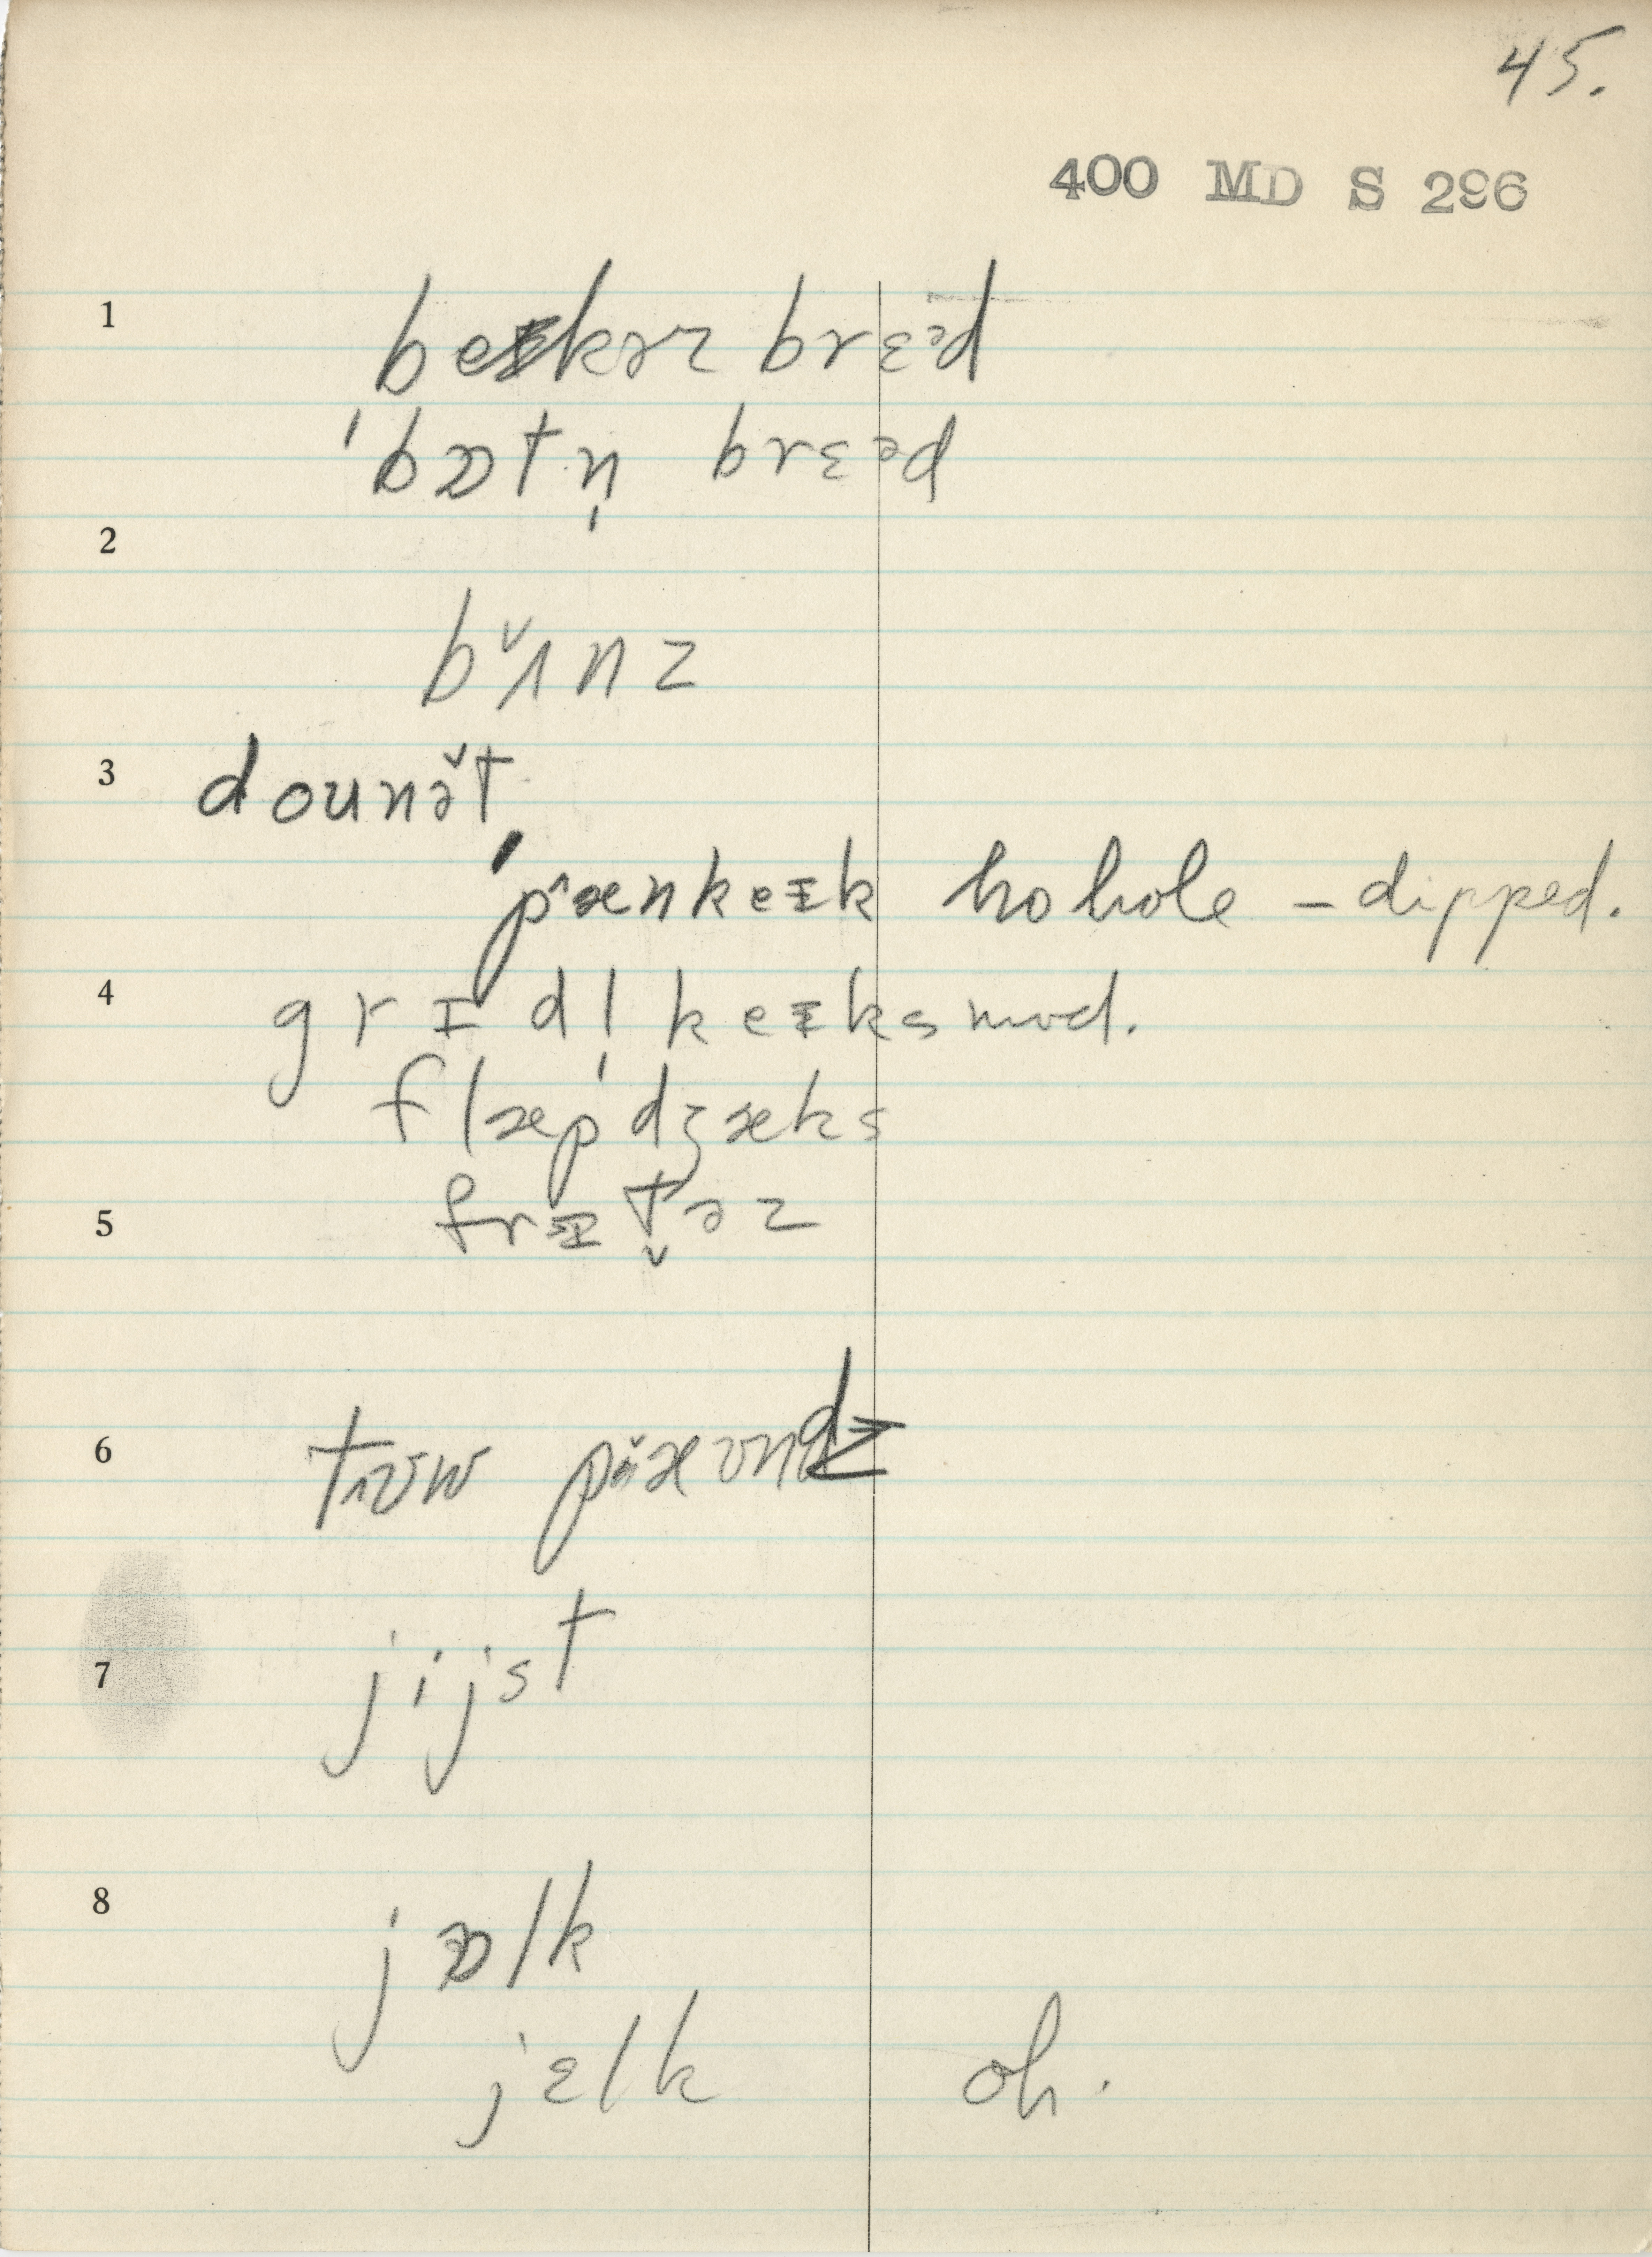 45.
400 MD S 296
1 beɪkəz brɛᵊd
ˈbɒtn̩ brɛᵊd
2
bʌ̌nz
3 dounə̌t
pænkeɪk no hole – dipped.
4 grɪdl̩keɪks mod.
flæpˈdʒæks
5 frɪt̬əz
6 tʌw pæʊndz
7 jijst
8 jɒlk
jɛlk oh.